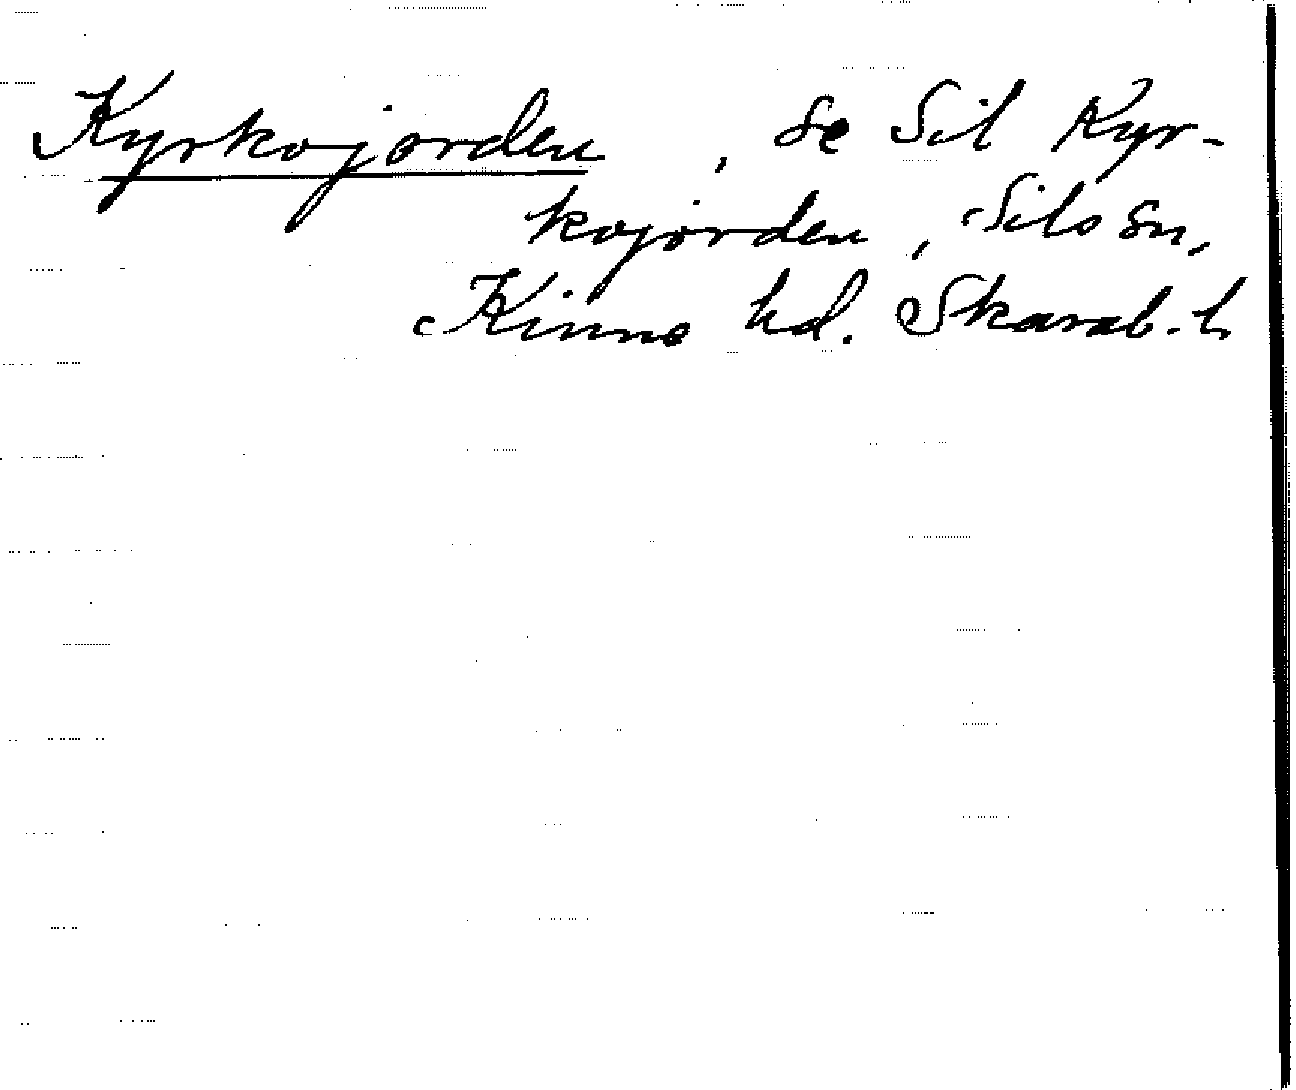 Kyrkojorden, se Sil Kyr-
kojorden, Sils sn,
Kinne hd. Skarab. l.